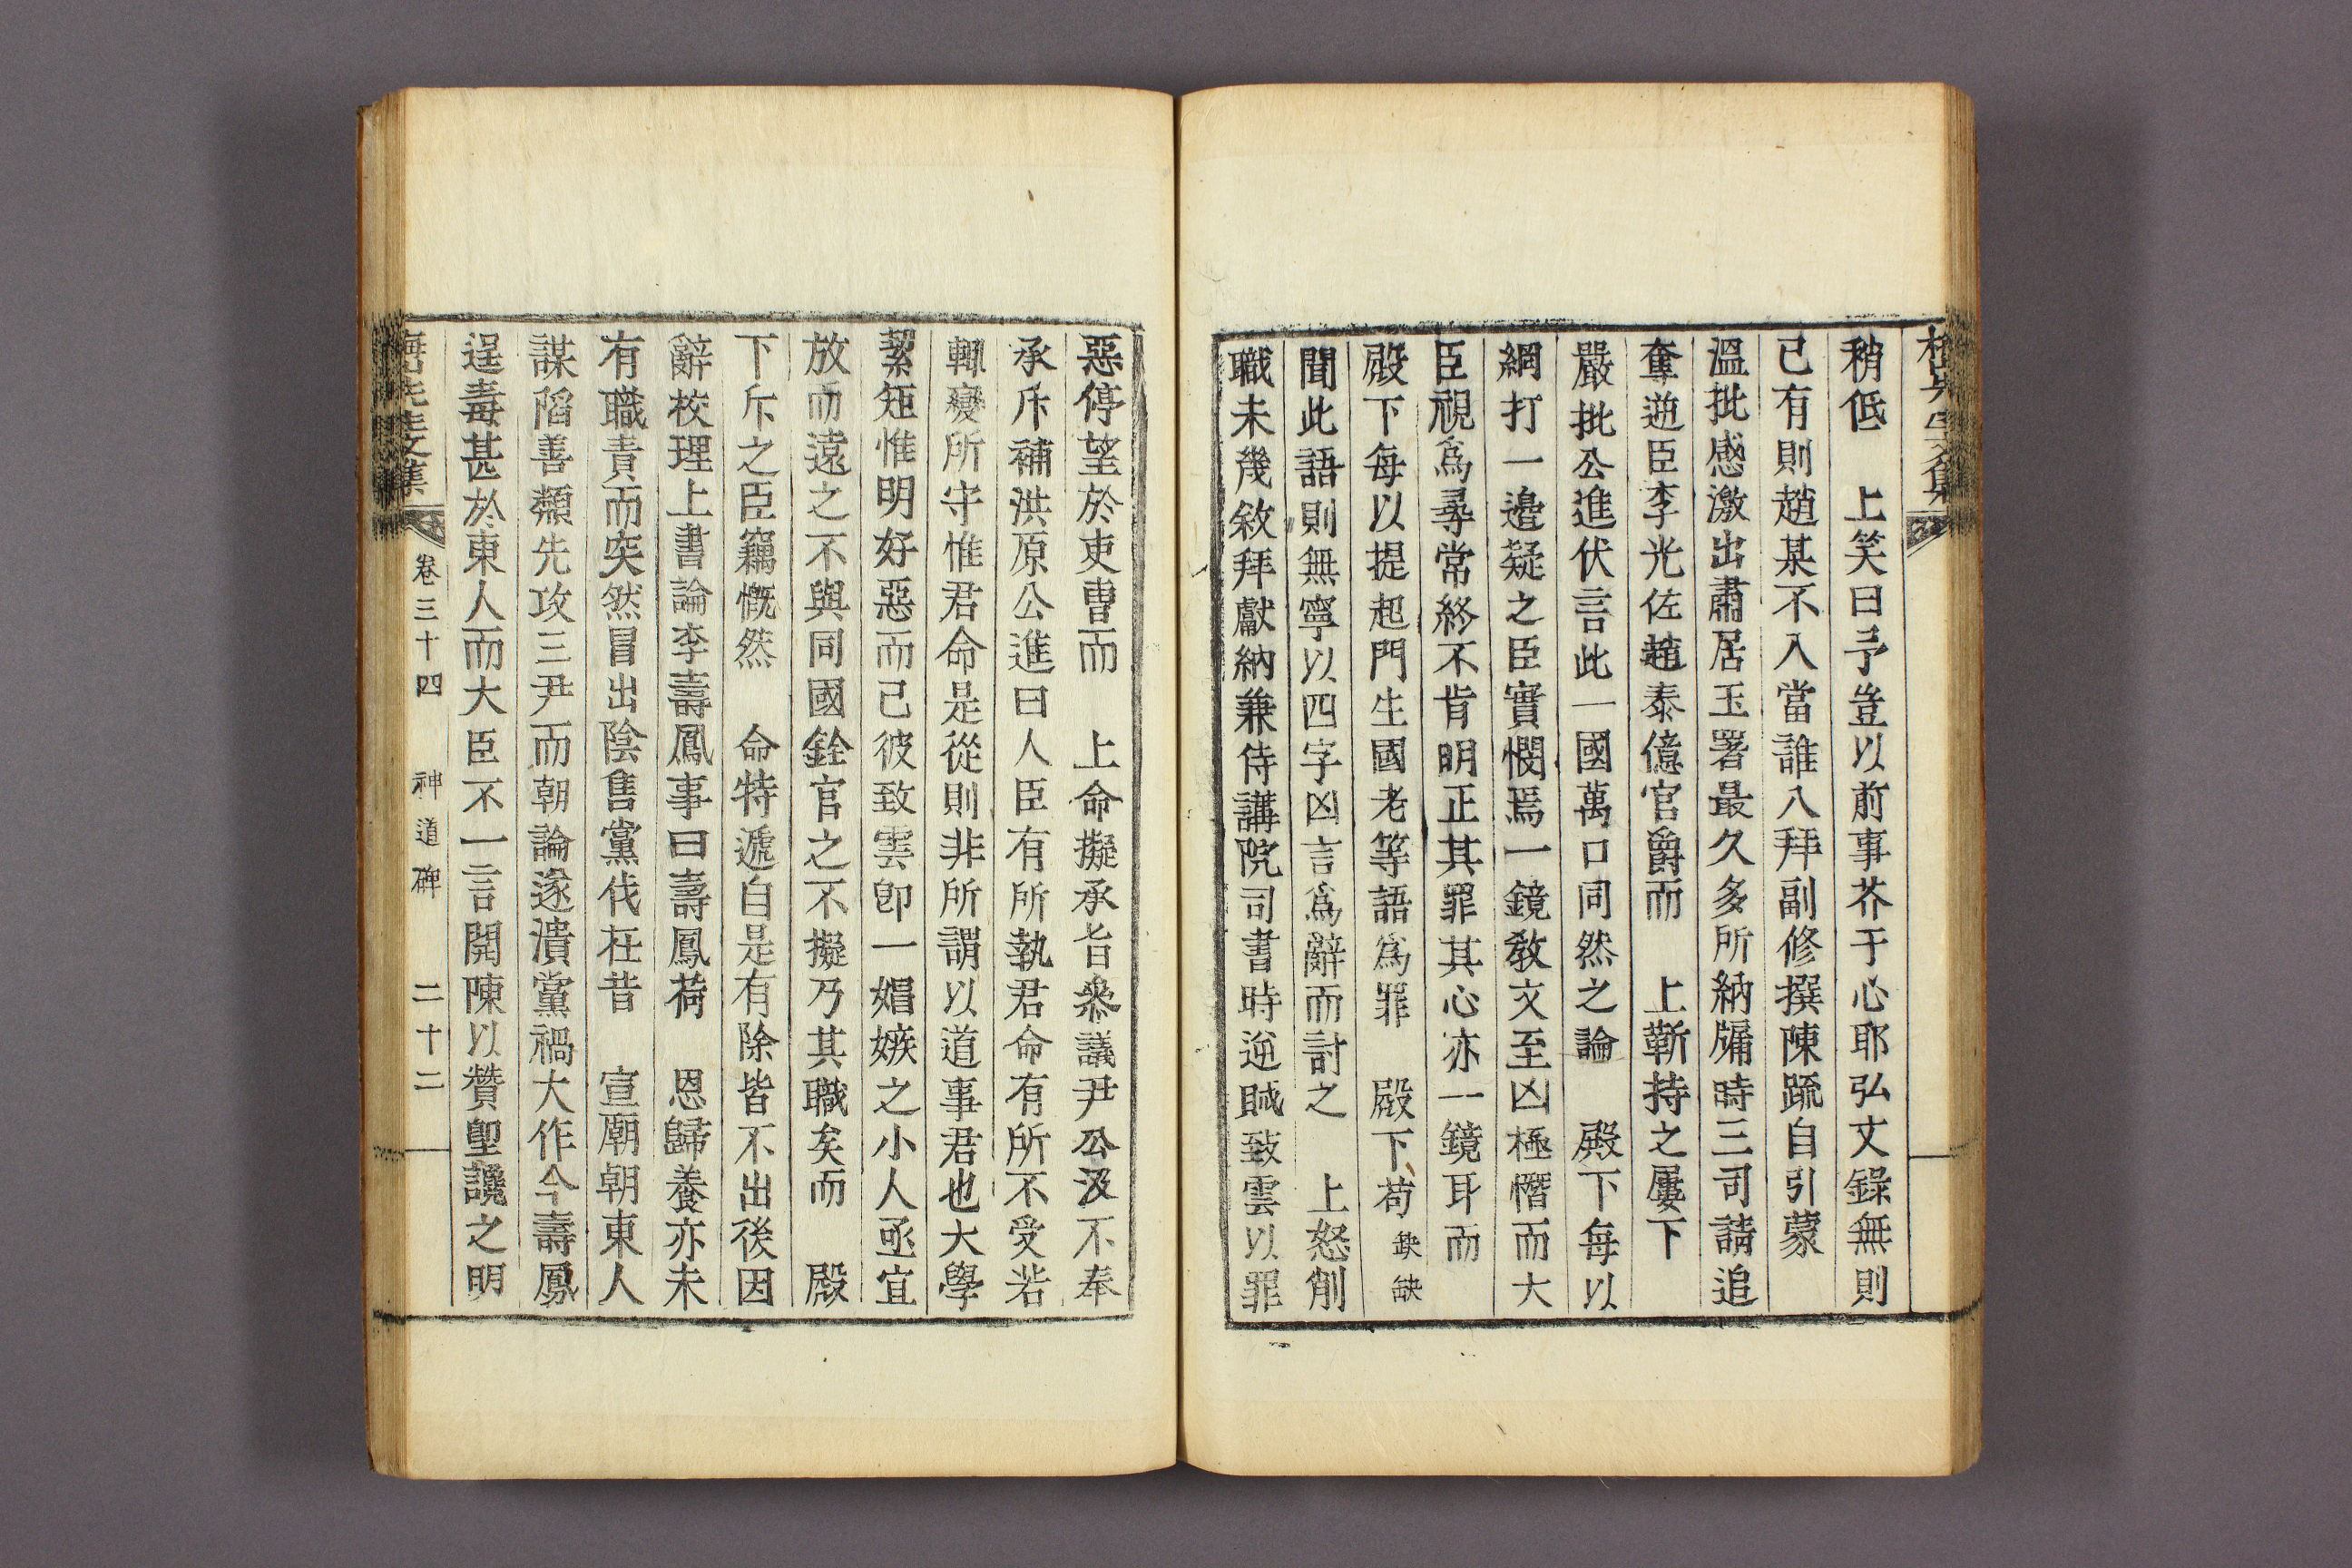 稍低　上笑曰予豈以前事芥于心耶弘文錄無則
已有則趙某不入當誰入拜副修撰陳疏自引蒙
溫批感激出肅居玉署最久多所納牖時三司請追
奪逆臣李光佐趙泰億官爵而　上靳持之屢下
嚴批公進伏言此一國萬口同然之論　殿下每以
網打一邊疑之臣實憫焉一鏡敎文至凶極憯而大
臣視爲尋常終不肯明正其罪其心亦一鏡耳而
殿下每以提起門生國老等語爲罪　殿下苟缺缺
聞此語則無寧以四字凶言爲辭而討之　上怒削
職未幾敘拜獻納兼侍講院司書時逆賊致雲以罪
惡停望於吏曹而　上命擬承旨叅議尹公汲不奉
承斥補洪原公進曰人臣有所執君命有所不受若
輒變所守惟君命是從則非所謂以道事君也大學
絜矩惟明好惡而已彼致雲卽一媢嫉之小人亟宜
放而遠之不與同國銓官之不擬乃其職矣而　殿
下斥之臣竊慨然　命特遞自是有除皆不出後因
辭校理上書論李壽鳳事曰壽鳳荷　恩歸養亦未
有職責而突然冒出陰售黨伐在昔　宣廟朝東人
謀陷善類先攻三尹而朝論遂潰黨禍大作今壽鳳
逞毒甚於東人而大臣不一言開陳以贊堲讒之明
卷三十四　神道碑　二十二